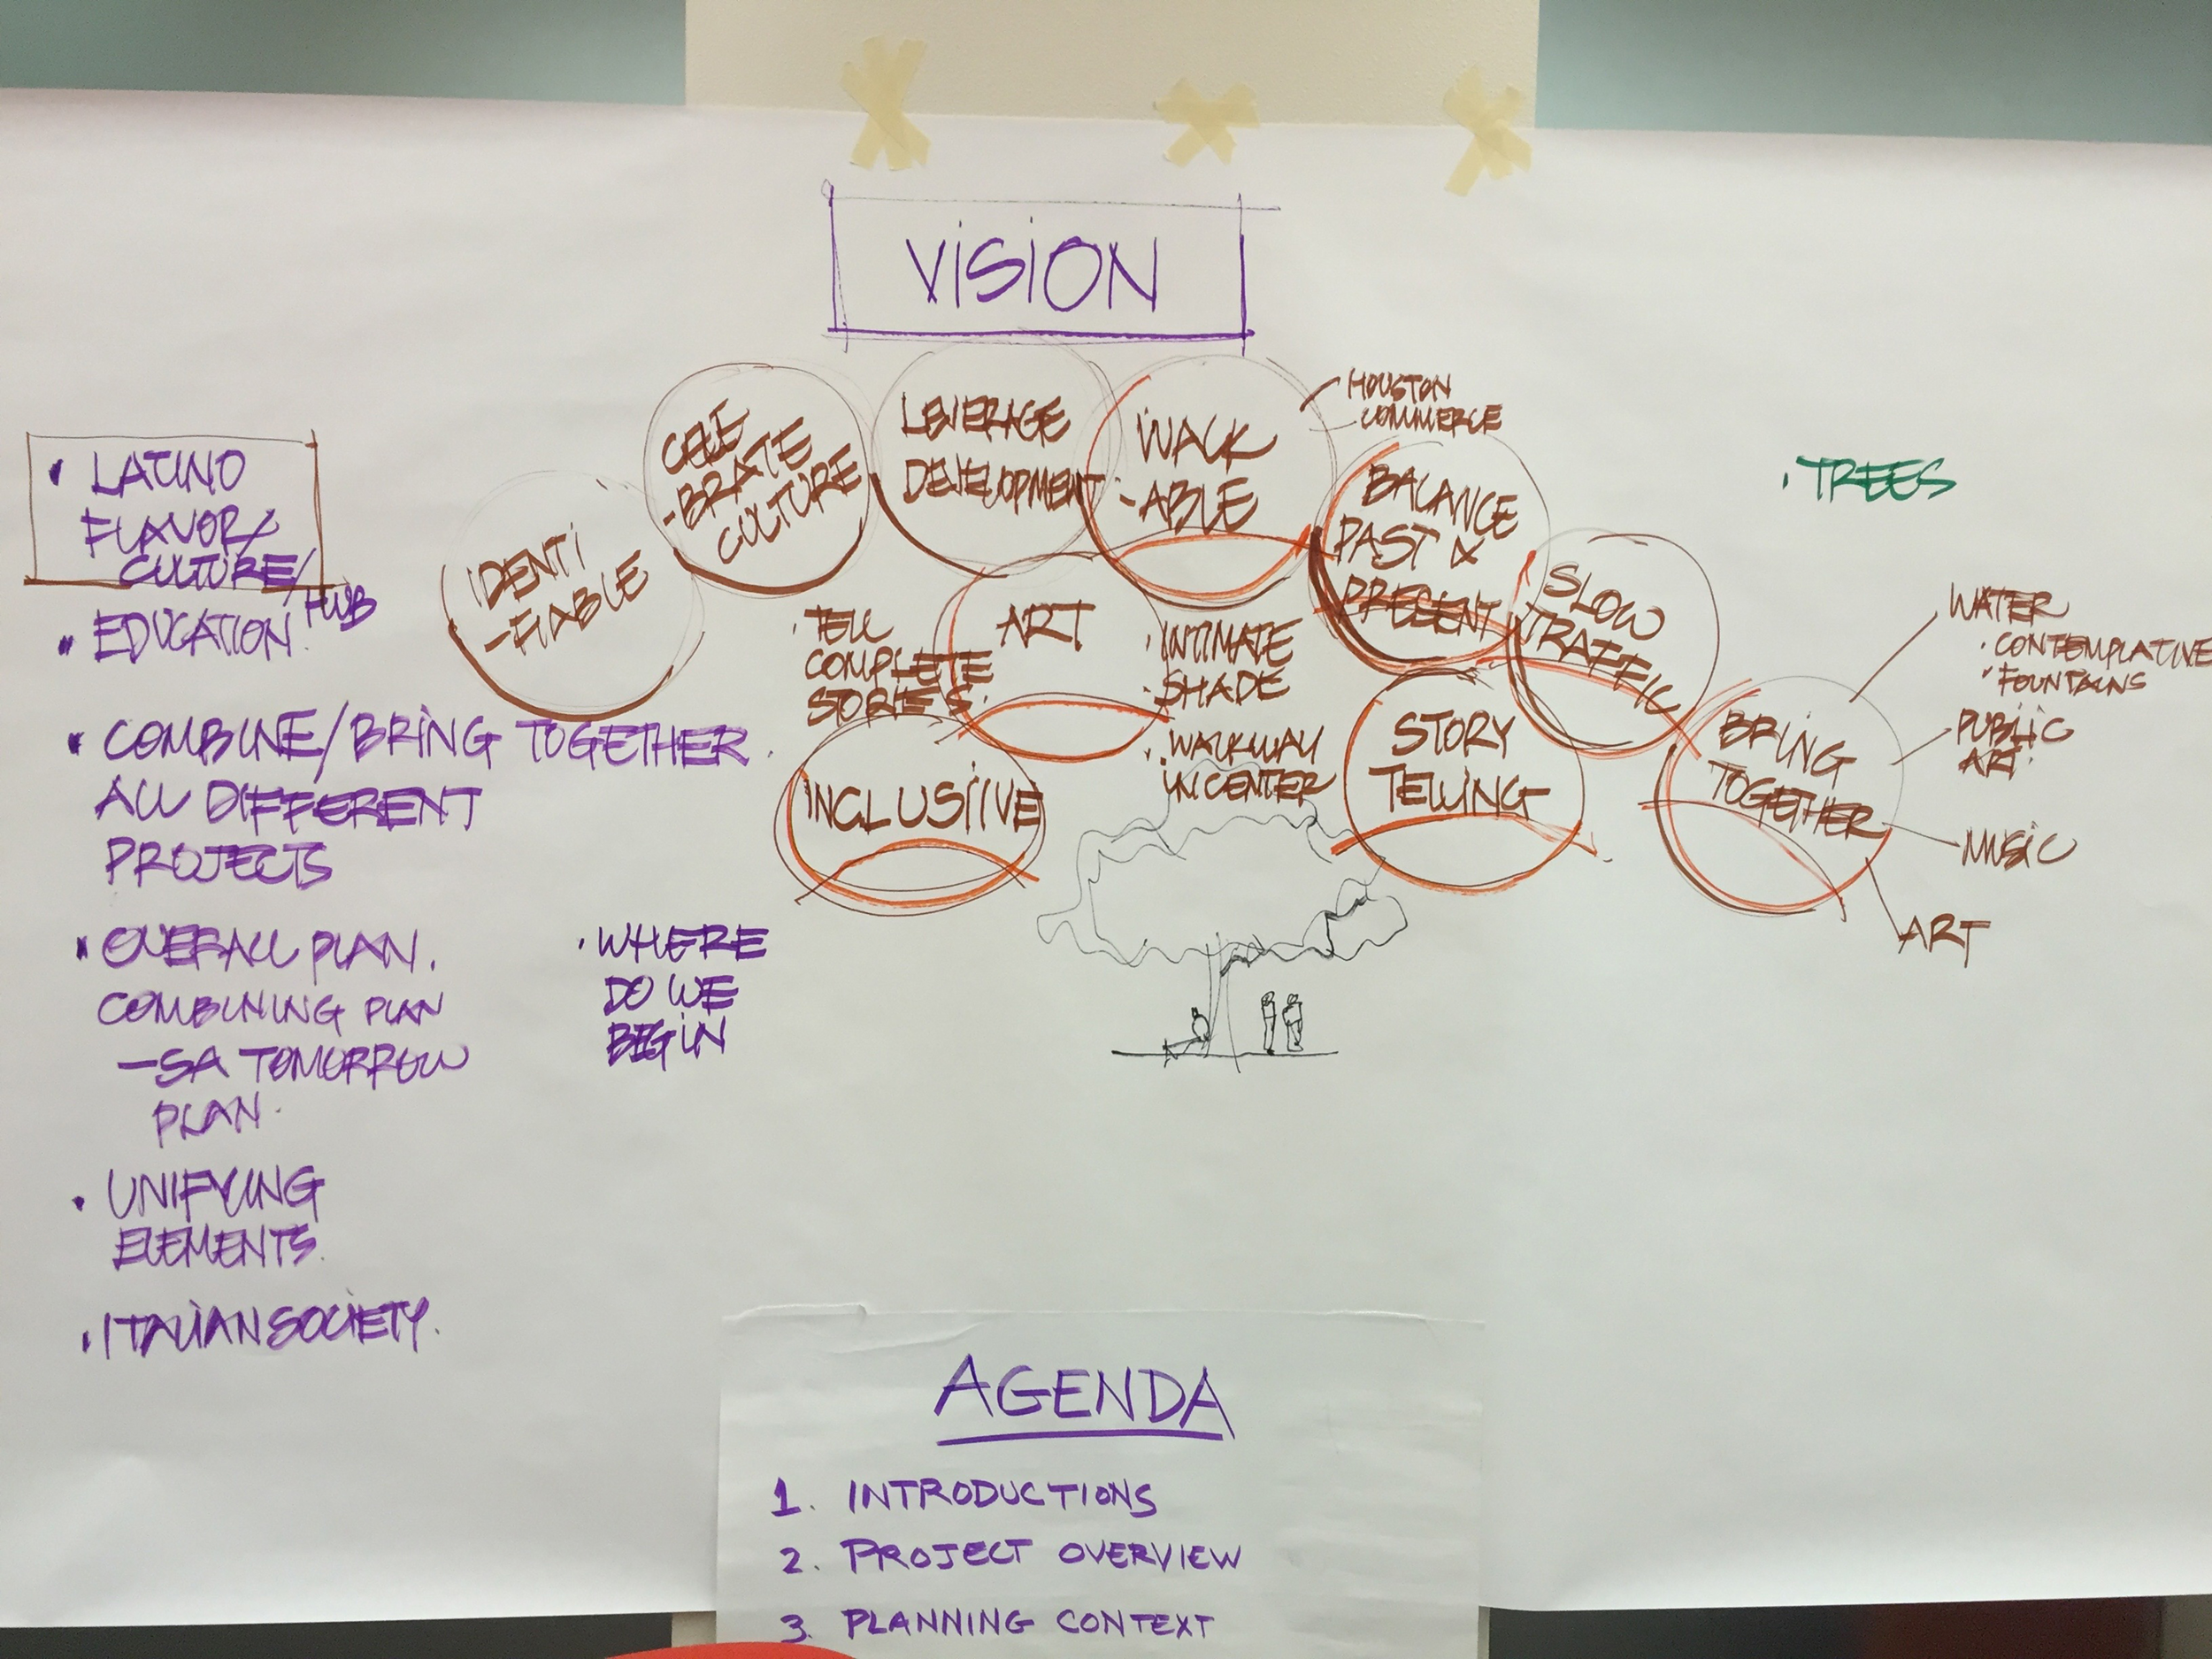 VISION
• LATINO
FLAVOR/
CULTURE/
HUB
• EDUCATION.
• COMBINE/BRING TOGETHER
ALL DIFFERENT
PROJECTS
• OVERALL PLAN.
COMBINING PLAN
—SA TOMORROW
PLAN.
• UNIFYING
ELEMENTS.
• ITALIAN SOCIETY.
• WHERE
DO WE
BEGIN
IDENTI
-FIABLE
CELE
-BRATE
CULTURE
LEVERAGE
DEVELOPMENT
WALK
-ABLE
HOUSTON
COMMERCE
BALANCE
PAST &
PRESENT
SLOW
TRAFFIC
• TELL
COMPLETE
STORIES.
ART
• INTIMATE
• SHADE
• WALKWAY
IN CENTER
INCLUSIIVE
STORY
TELLING
BRING
TOGETHER
WATER
• CONTEMPLATIVE
• FOUNTAINS
PUBLIC
ART.
MUSIC
ART
• TREES
AGENDA
1. INTRODUCTIONS
2. PROJECT OVERVIEW
3. PLANNING CONTEXT